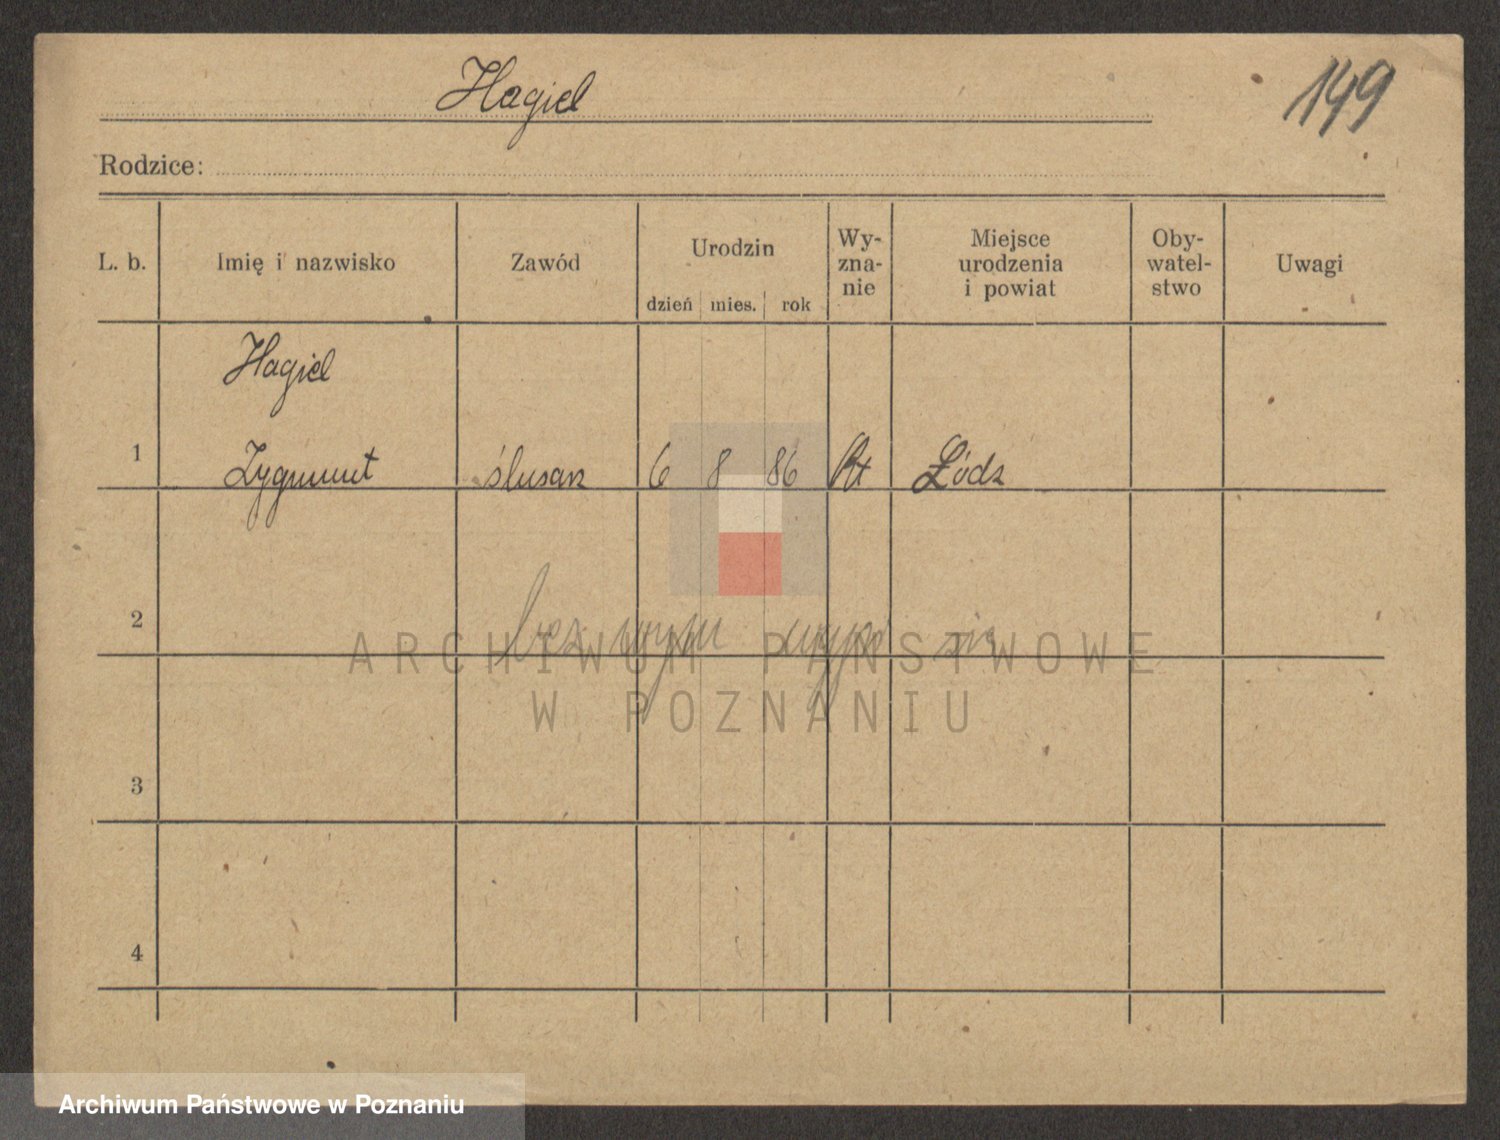 Hagiel
149
Rodzice:
L. b. Imię i nazwisko Zawód Urodzin dzień mies. rok Wy-zna-nie Miejsce urodzenia i powiat Oby-watel-stwo Uwagi
Hagiel
1 Zygmunt ślusarz 6 8 86 Łódz
2 bez
ARCHIWUM PAŃSTWOWE
W POZNANIU
3
4
Archiwum Państwowe w Poznaniu